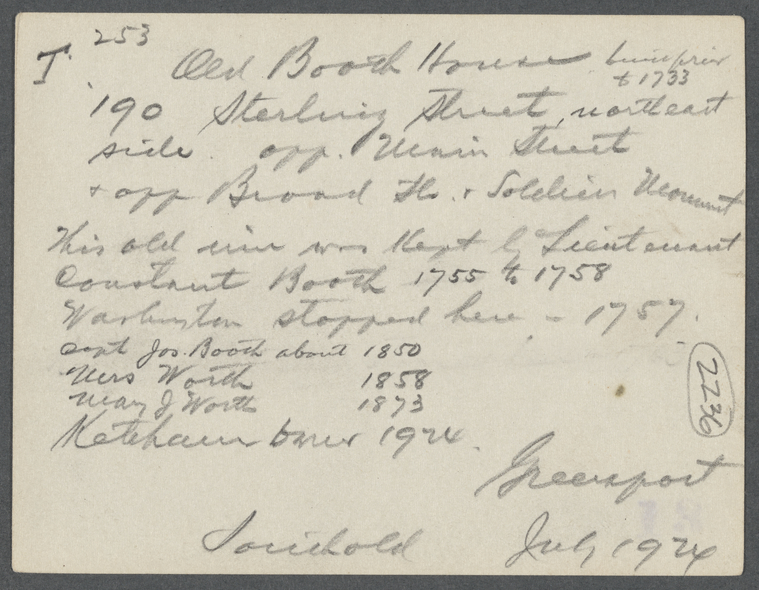 I. 253 Old Booth House built prior
to 1733
190 Sterling Street, northeast
side opp. Main Street
+ opp Broad St. + Soldier Monument
This old inn was kept by Lieutenant
Constant Booth 1755 to 1758
Washington stopped here - 1757.
Capt Jos. Booth about 1850
Mrs Worth 1858
May J Worth 1873
Ketcham owner 1924.
2236
Greenport
Southold July 1924